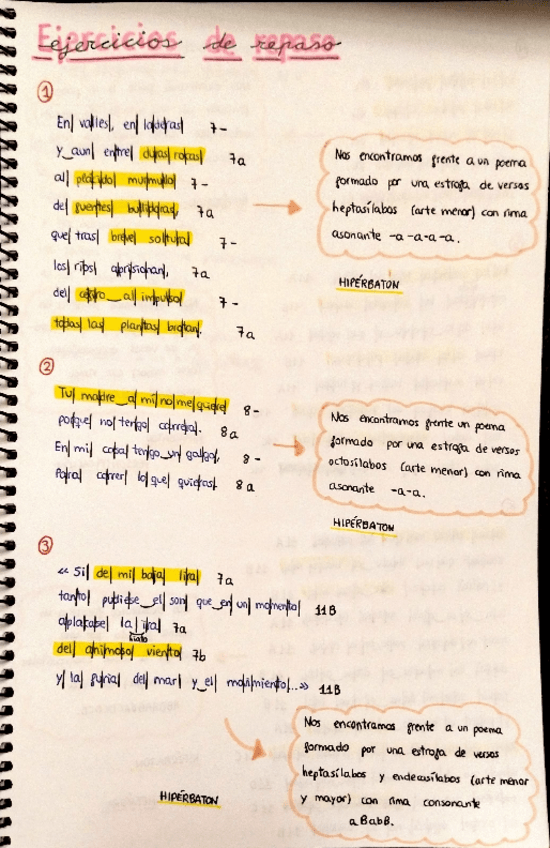 Ejercicios de repaso
1
En valles, en laderas 7-
y aun entre duras rocas 7a
al plácido murmullo 7-
de fuentes bullidoras, 7a
que tras breve soltura 7-
los ríos aprisionan, 7a
del céfiro al impulso 7-
todas las plantas brotan. 7a
Nos encontramos frente a un poema
formado por una estrofa de versos
heptasílabos (arte menor) con rima
asonante -a-a-a-a.
HIPÉRBATON
2
Tu madre a mí no me quiere 8-
porque no tengo carrera. 8a
En mi casa tengo un galgo, 8-
Para correr lo que quieras. 8a
Nos encontramos frente un poema
formado por una estrofa de versos
octosílabos (arte menor) con rima
asonante -a-a.
HIPÉRBATON
3
«Si de mi baja lira 7a
tanto pudiese el son que en un momento 11B
aplacase la ira 7a
hiato
del animoso viento 7b
y la furia del mar y el movimiento...» 11B
Nos encontramos frente a un poema
formado por una estrofa de versos
heptasílabos y endecasílabos (arte menor
y mayor) con rima consonante
aBabB.
HIPÉRBATON